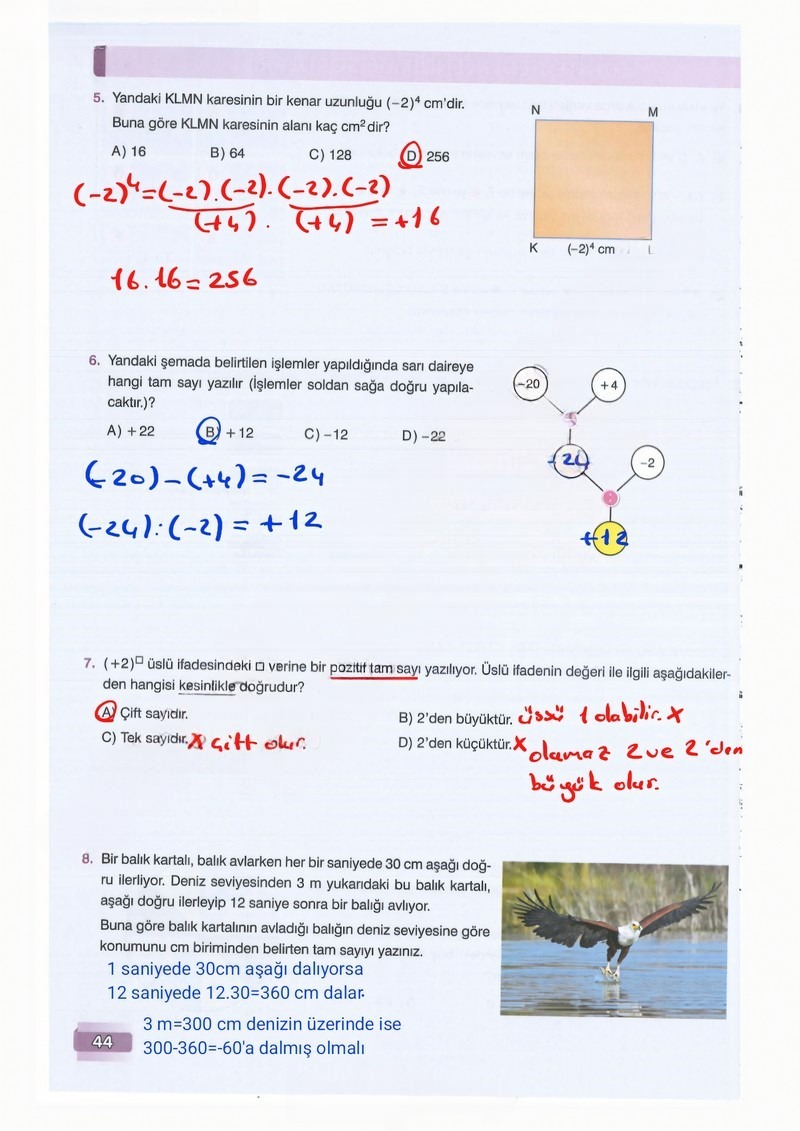 5. Yandaki KLMN karesinin bir kenar uzunluğu (−2)⁴ cm'dir.
Buna göre KLMN karesinin alanı kaç cm² dir?
A) 16 B) 64 C) 128 D) 256
(-2)⁴=(-2).(-2).(-2).(-2)
(+4). (+4) = +16
16.16=256
N M
K (−2)⁴ cm L
6. Yandaki şemada belirtilen işlemler yapıldığında sarı daireye
hangi tam sayı yazılır (İşlemler soldan sağa doğru yapıla-
caktır.)?
A) +22 B) +12 C) −12 D) −22
(-20)-(+4)=-24
(-24):(-2)=+12
−20 +4
-24 −2
+12
7. (+2)□ üslü ifadesindeki □ yerine bir pozitif tam sayı yazılıyor. Üslü ifadenin değeri ile ilgili aşağıdakiler-
den hangisi kesinlikle doğrudur?
A) Çift sayıdır. B) 2'den büyüktür. üssü 1 olabilir. x
C) Tek sayıdır. x çift olur. D) 2'den küçüktür. x olamaz 2 ve 2'den
büyük olur.
8. Bir balık kartalı, balık avlarken her bir saniyede 30 cm aşağı doğ-
ru ilerliyor. Deniz seviyesinden 3 m yukarıdaki bu balık kartalı,
aşağı doğru ilerleyip 12 saniye sonra bir balığı avlıyor.
Buna göre balık kartalının avladığı balığın deniz seviyesine göre
konumunu cm biriminden belirten tam sayıyı yazınız.
1 saniyede 30cm aşağı dalıyorsa
12 saniyede 12.30=360 cm dalar.
3 m=300 cm denizin üzerinde ise
300-360=-60'a dalmış olmalı
44